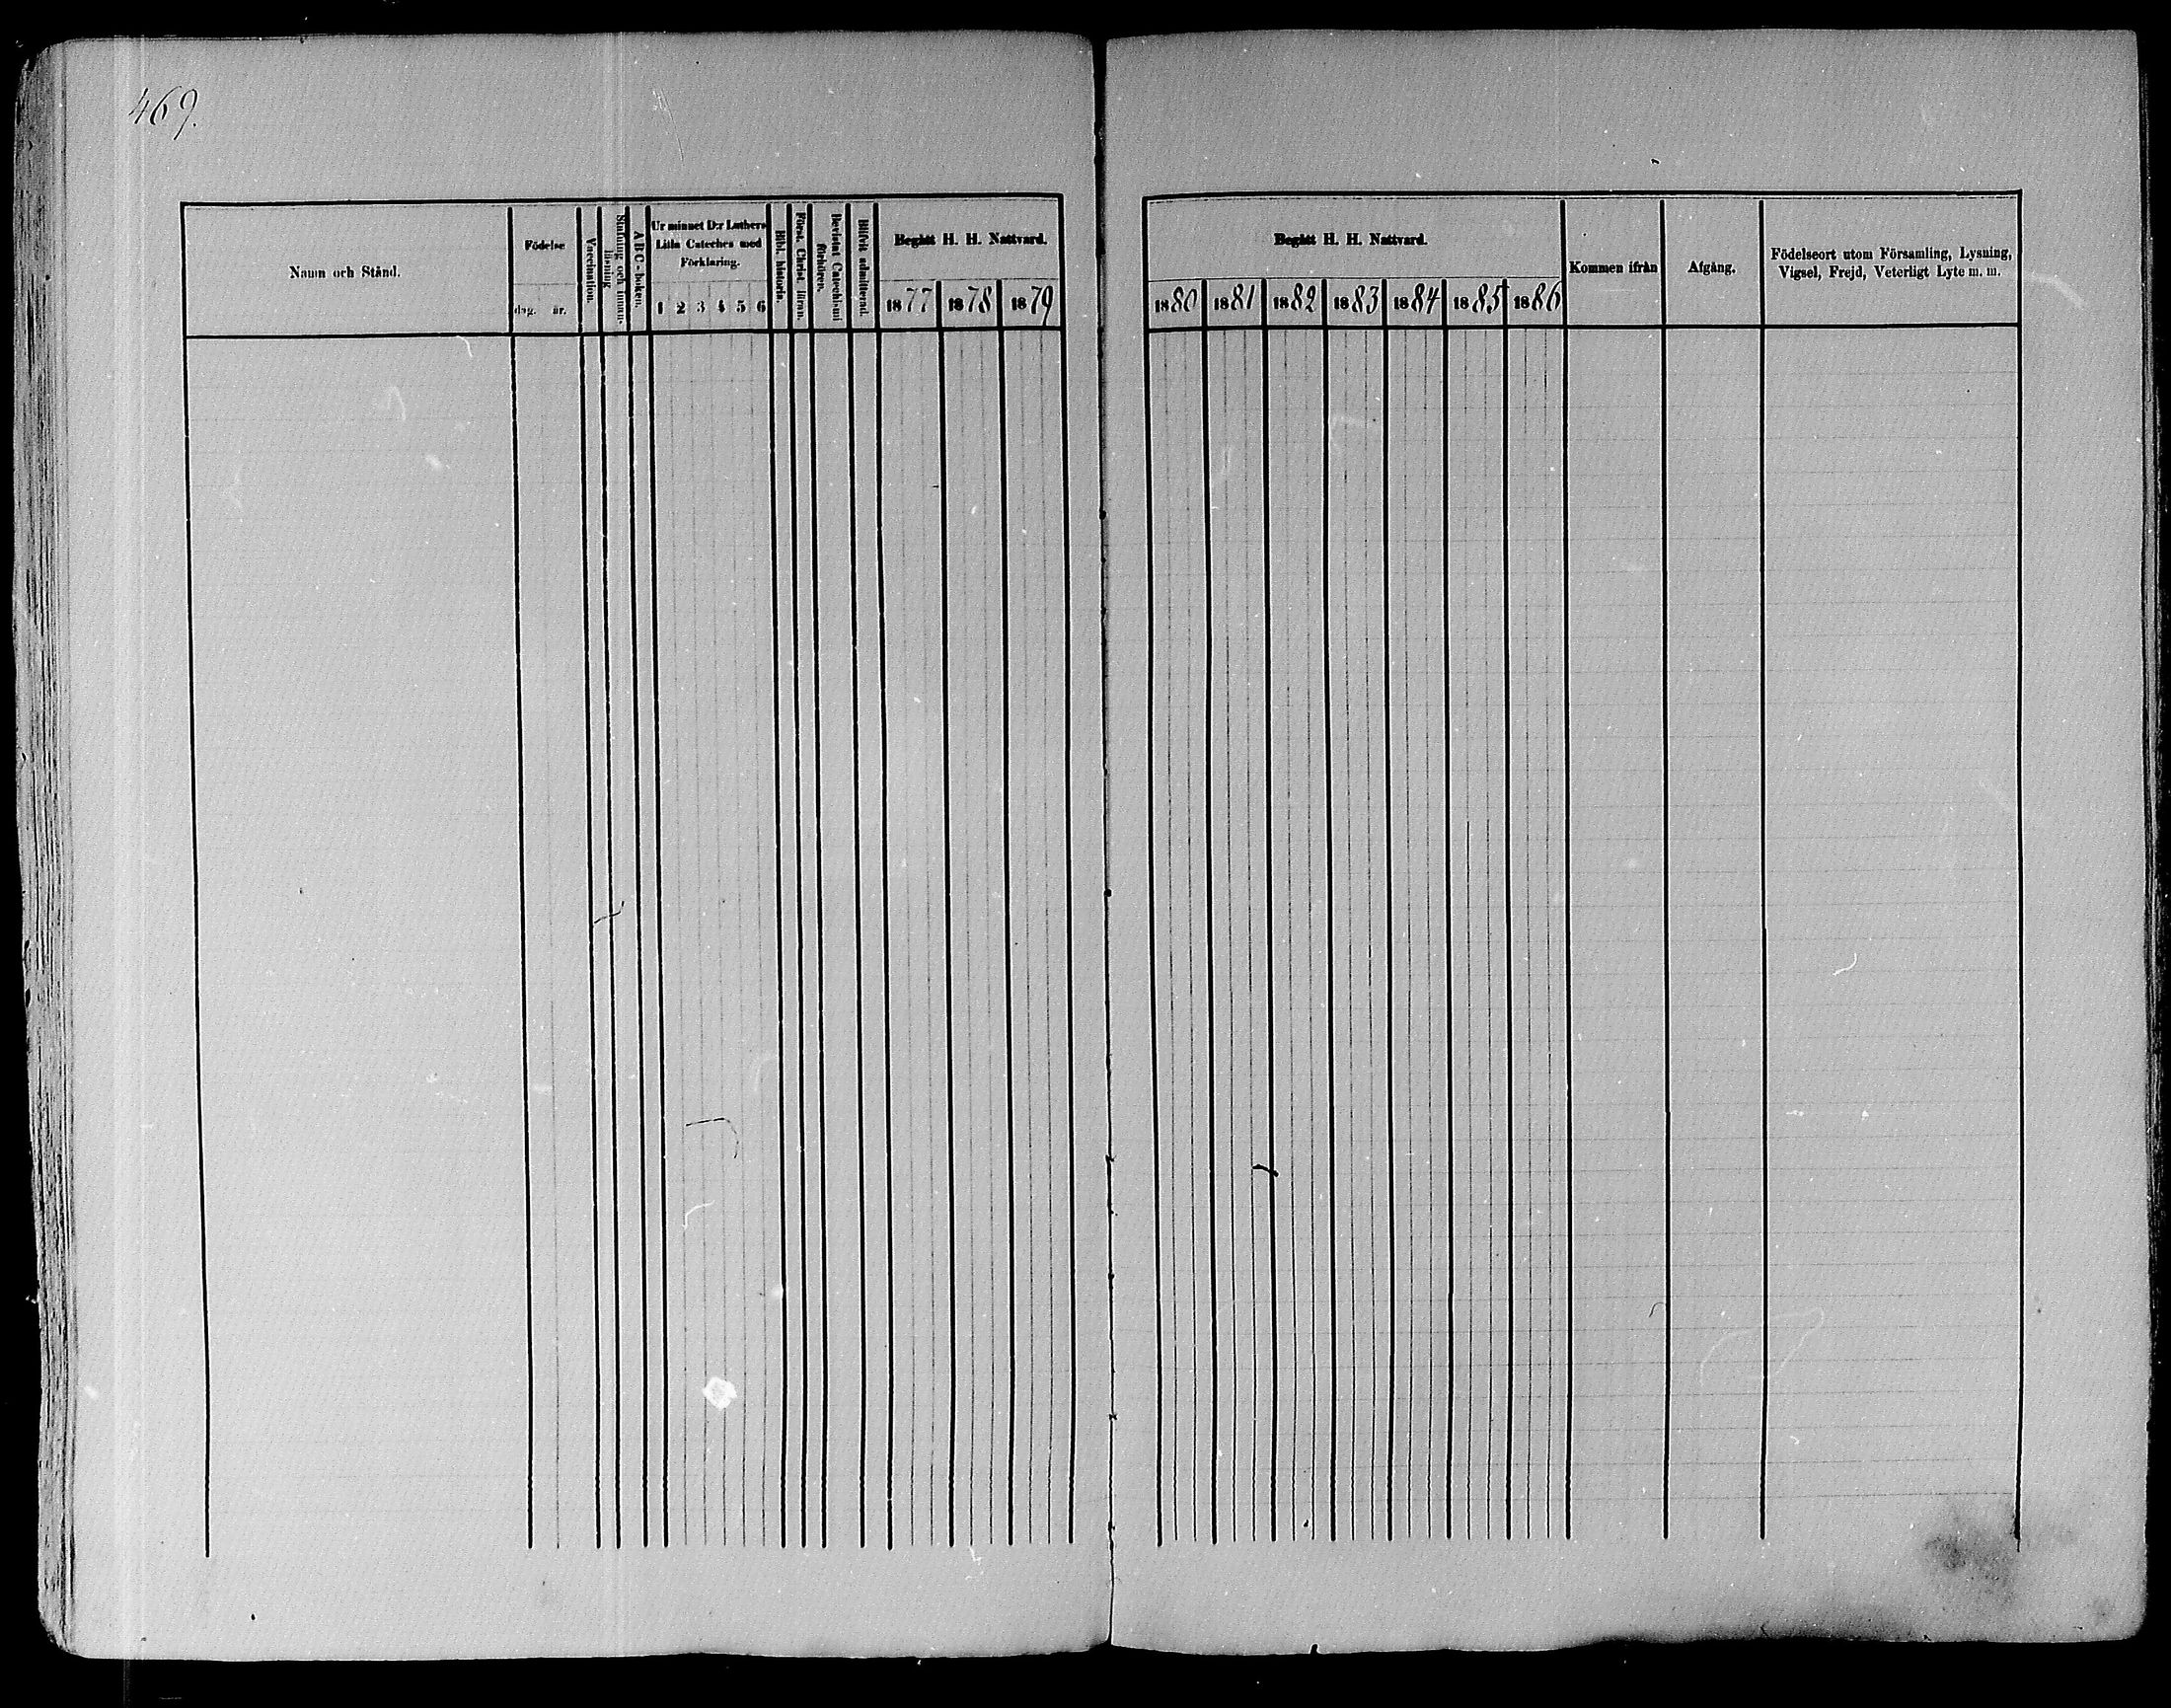 469.
Namn och Stånd.
Födelse
dag. år.
Vaccination.
Stafning och innan-
läsning
A B C - boken.
Ur minnet D:r Luthers
Lilla Cateches med
Förklaring.
1 2 3 4 5 6
Bibl. historia.
Först. Christ. läran.
Bevistat Catechismi
förhören.
Blifvit admitterad.
Begått H. H. Nattvard.
1877 1878 1879
Begått H. H. Nattvard.
1880 1881 1882 1883 1884 1885 1886
Kommen ifrån
Afgång.
Födelseort utom Församling, Lysning,
Vigsel, Frejd, Veterligt Lyte m. m.